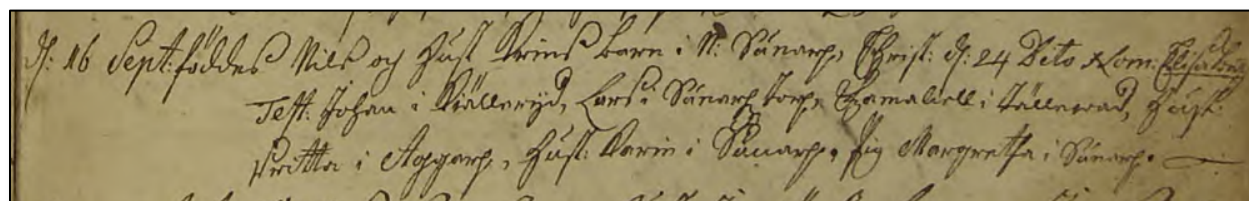 d: 16 Sept: föddes Nils och Hust Kirins barn i N: Sunarp, Christ: d: 24 Dito Nom: Elisabeth
Test: Johan i Kiälleryd, Lars i Sunarp torp, Gamaliell i Källerad, Hust:
Britta i Aggarp, Hust: Karin i Sunarp, Pig Margretha i Sunarp.